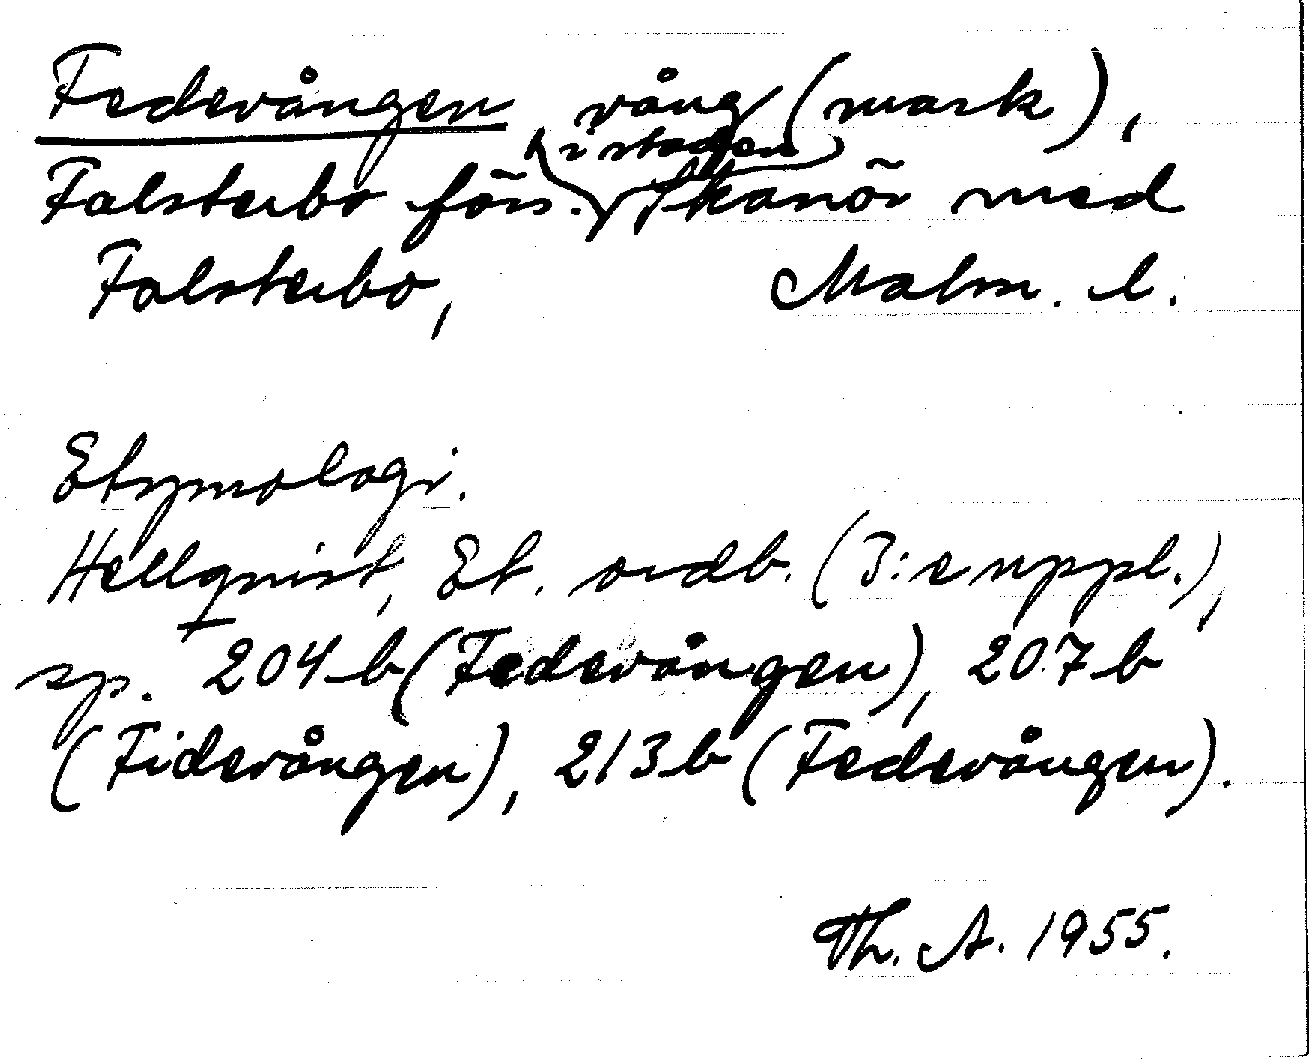 Fedevången vång (mark),
Falsterbo förs. (i staden) Skanör med
Falsterbo, Malm. l.
Etymologi.
Hellquist, Et. ordb. (3:e uppl.),
sp. 204 b (Fedevången), 207 b
(Fidevången), 213 b (Fedevången).
Th. A. 1955.